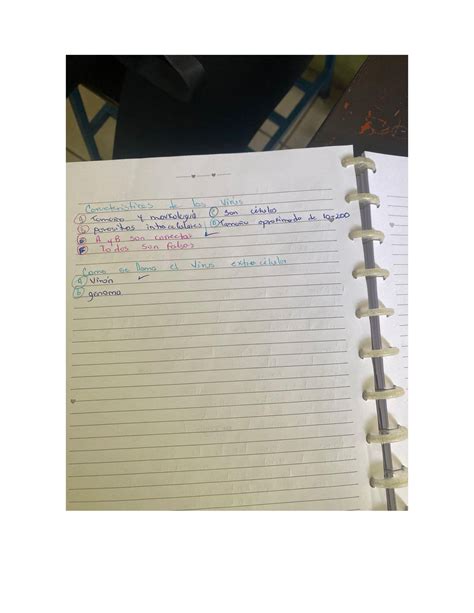 Características de los Virus
a) Tamaño y morfología c) son célula
b) parasitos intracelulares d) Tamaño aproximado de 10-200
e) A y B son correctas ✓
f) Todos son falsos
Como se llama el virus extracélula
a) Virón ✓
b) genoma